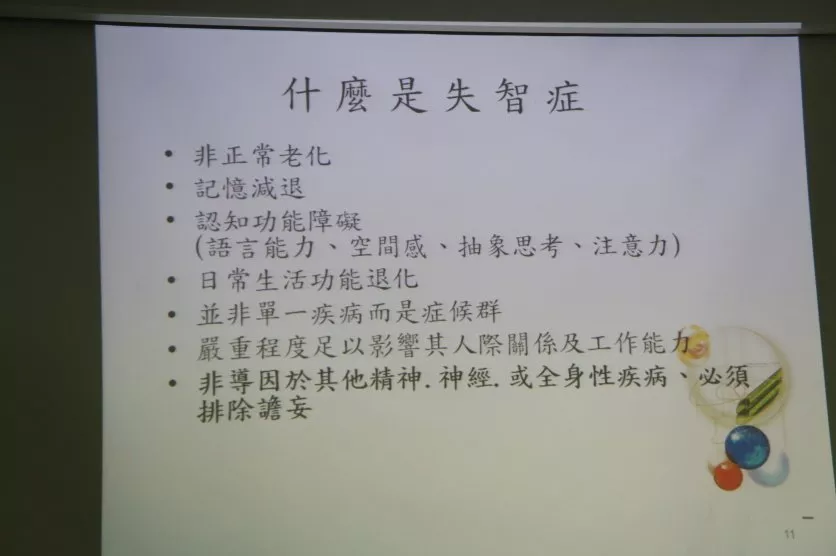 什麼是失智症
• 非正常老化
• 記憶減退
• 認知功能障礙
(語言能力、空間感、抽象思考、注意力)
• 日常生活功能退化
• 並非單一疾病而是症候群
• 嚴重程度足以影響其人際關係及工作能力
• 非導因於其他精神.神經.或全身性疾病、必須
排除譫妄
11